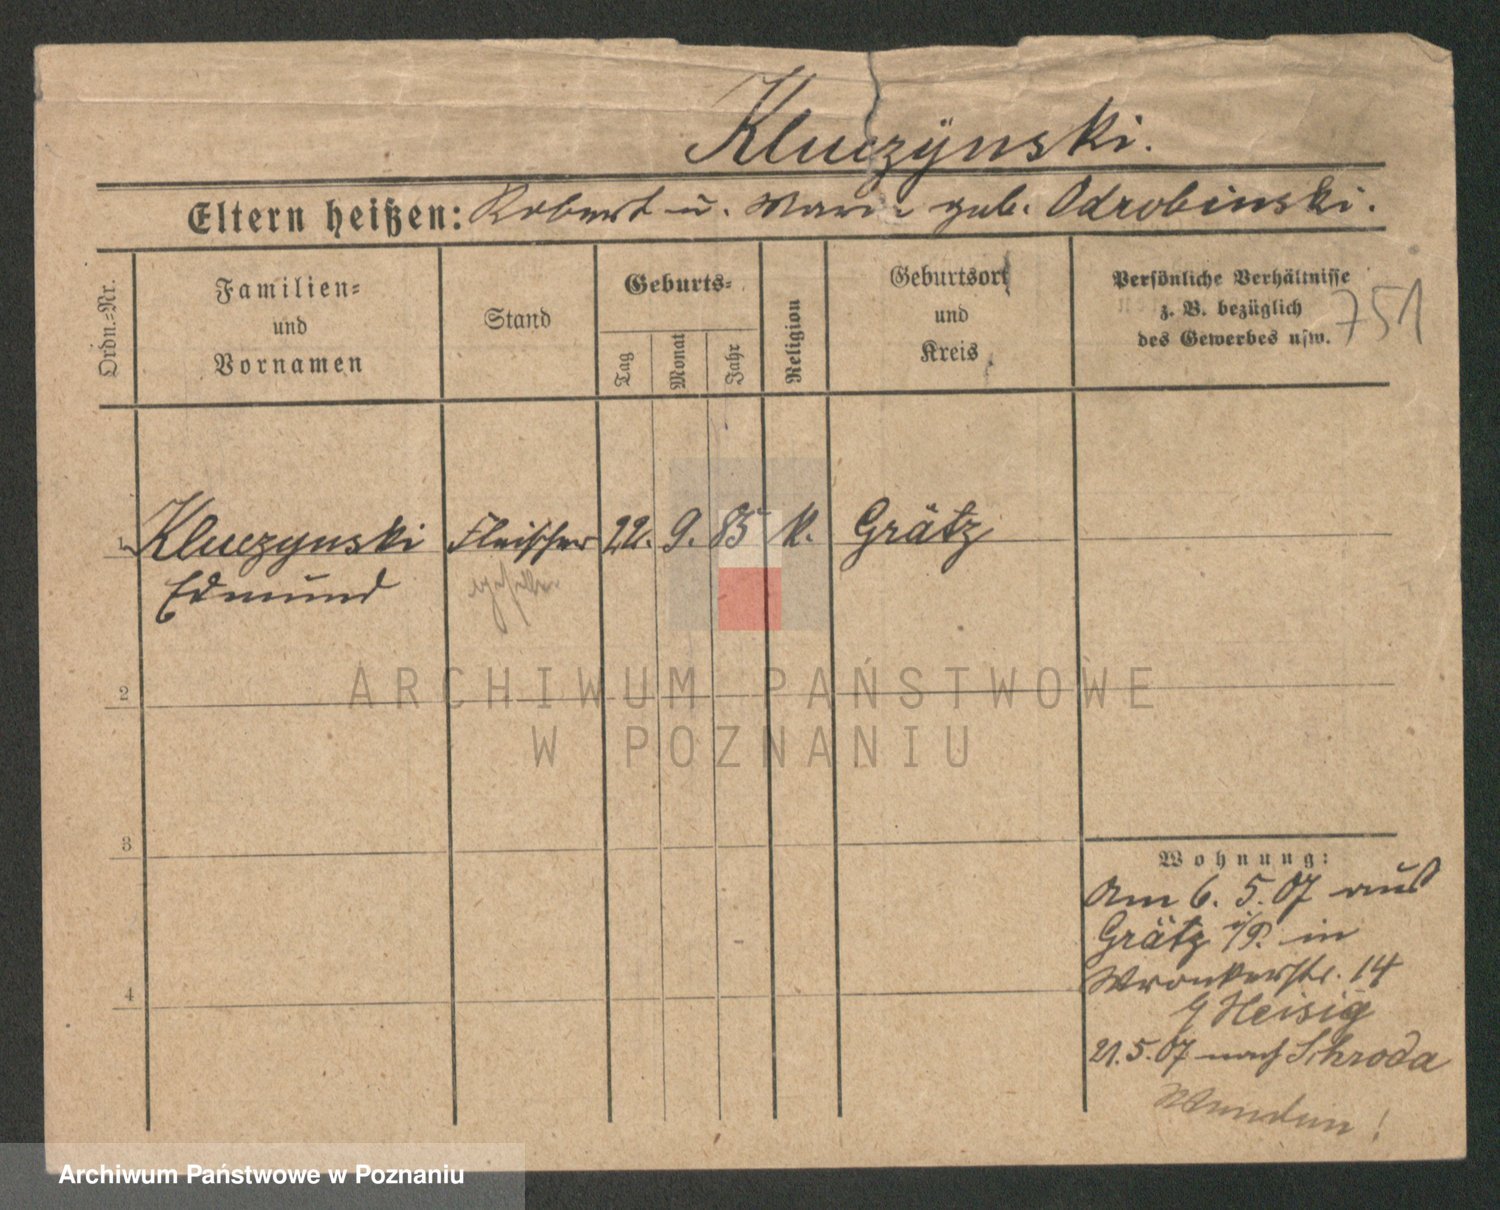 Kluczÿnski.
Eltern heißen: Robert u. Marie geb. Odrobinski.
Ordn.-Nr.
Familien-
und
Vornamen
Stand
Geburts-
Tag
Monat
Jahr
Religion
Geburtsort
und
Kreis
Persönliche Verhältnisse
z. B. bezüglich
des Gewerbes usw.
751
1 Kluczynski Fleischer 22. 9. 85 k. Grätz
Edmund
2
3
4
Wohnung:
Am 6. 5. 07 aus
Grätz i/P. in
Wronkerstr. 14
Heisig
21. 5. 07 nach Schroda
ARCHIWUM PAŃSTWOWE
W POZNANIU
Archiwum Państwowe w Poznaniu